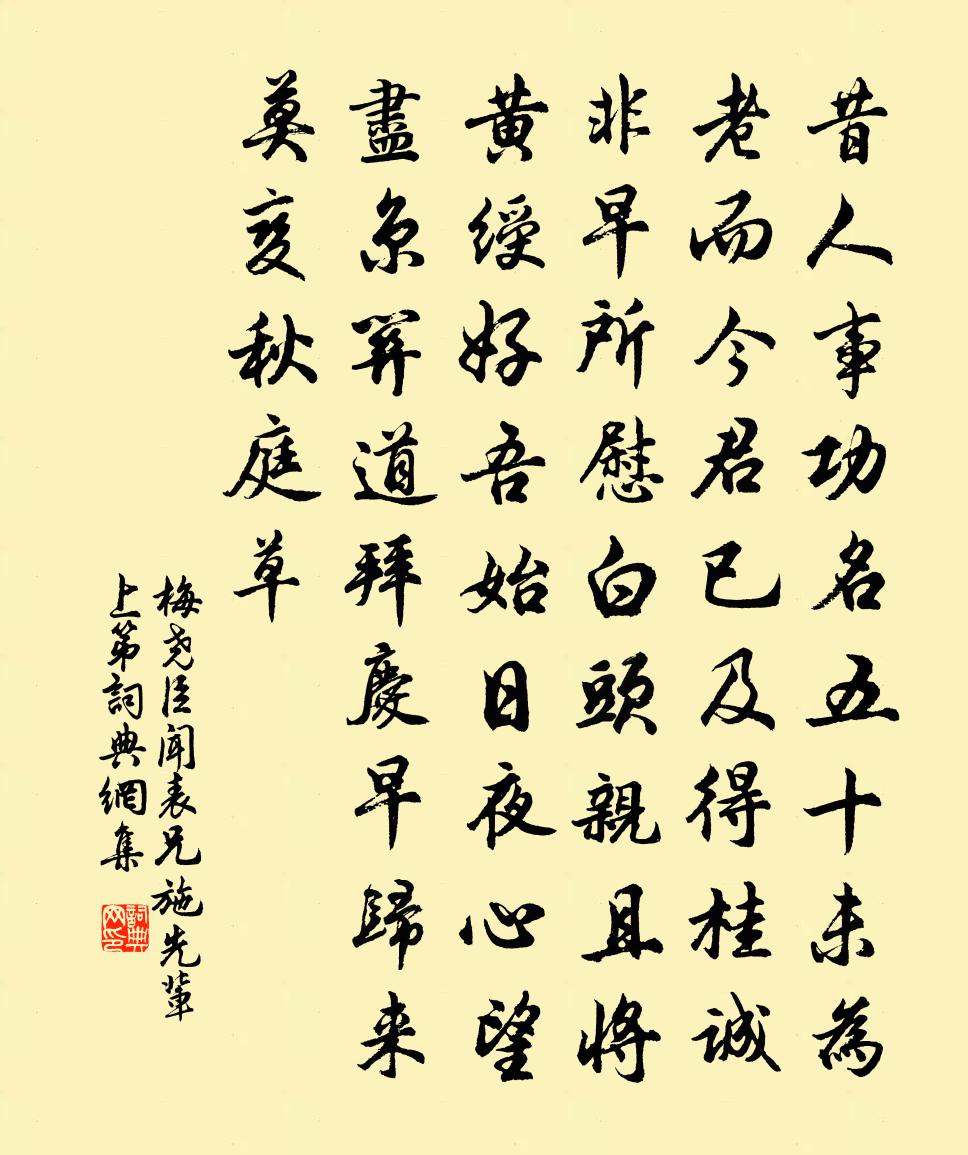 昔人事功名五十未為
老而今君已及得桂誠
非早所慰白頭親且將
黄綬好吾始日夜心望
盡京關道拜慶早歸来
莫变秋庭草
梅尧臣聞表兄施先輩
上第詞典網集
詞典网印